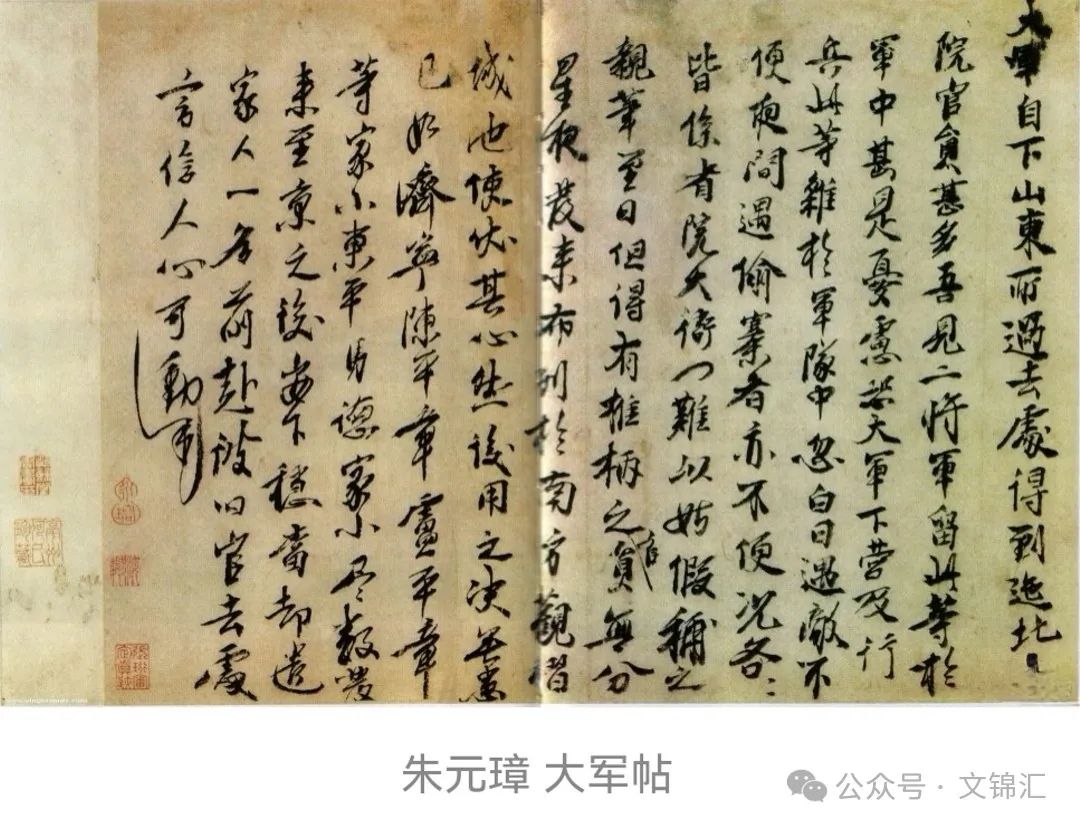 大軍自下山東所過去處得到迤北
院官員甚多吾見二將軍留此等於
軍中甚是憂慮恐大軍下營及行
兵此等雜於軍隊中忽白日遇敵不
便夜間遇偷寨者亦不便況各〻
皆係省院大衙門難以姑假補之
親筆至日但得有椎柄之官員無分
星夜發來布列於南方觀習
城池使伏其心然後用之決無患
已如濟寧陳平章盧平章
等家小東平馬德家小尽数發
來至京之後安下穩當却遣
家人一名前赴彼旧官去處
言信人心可動
朱元璋 大军帖
公众号 · 文锦汇